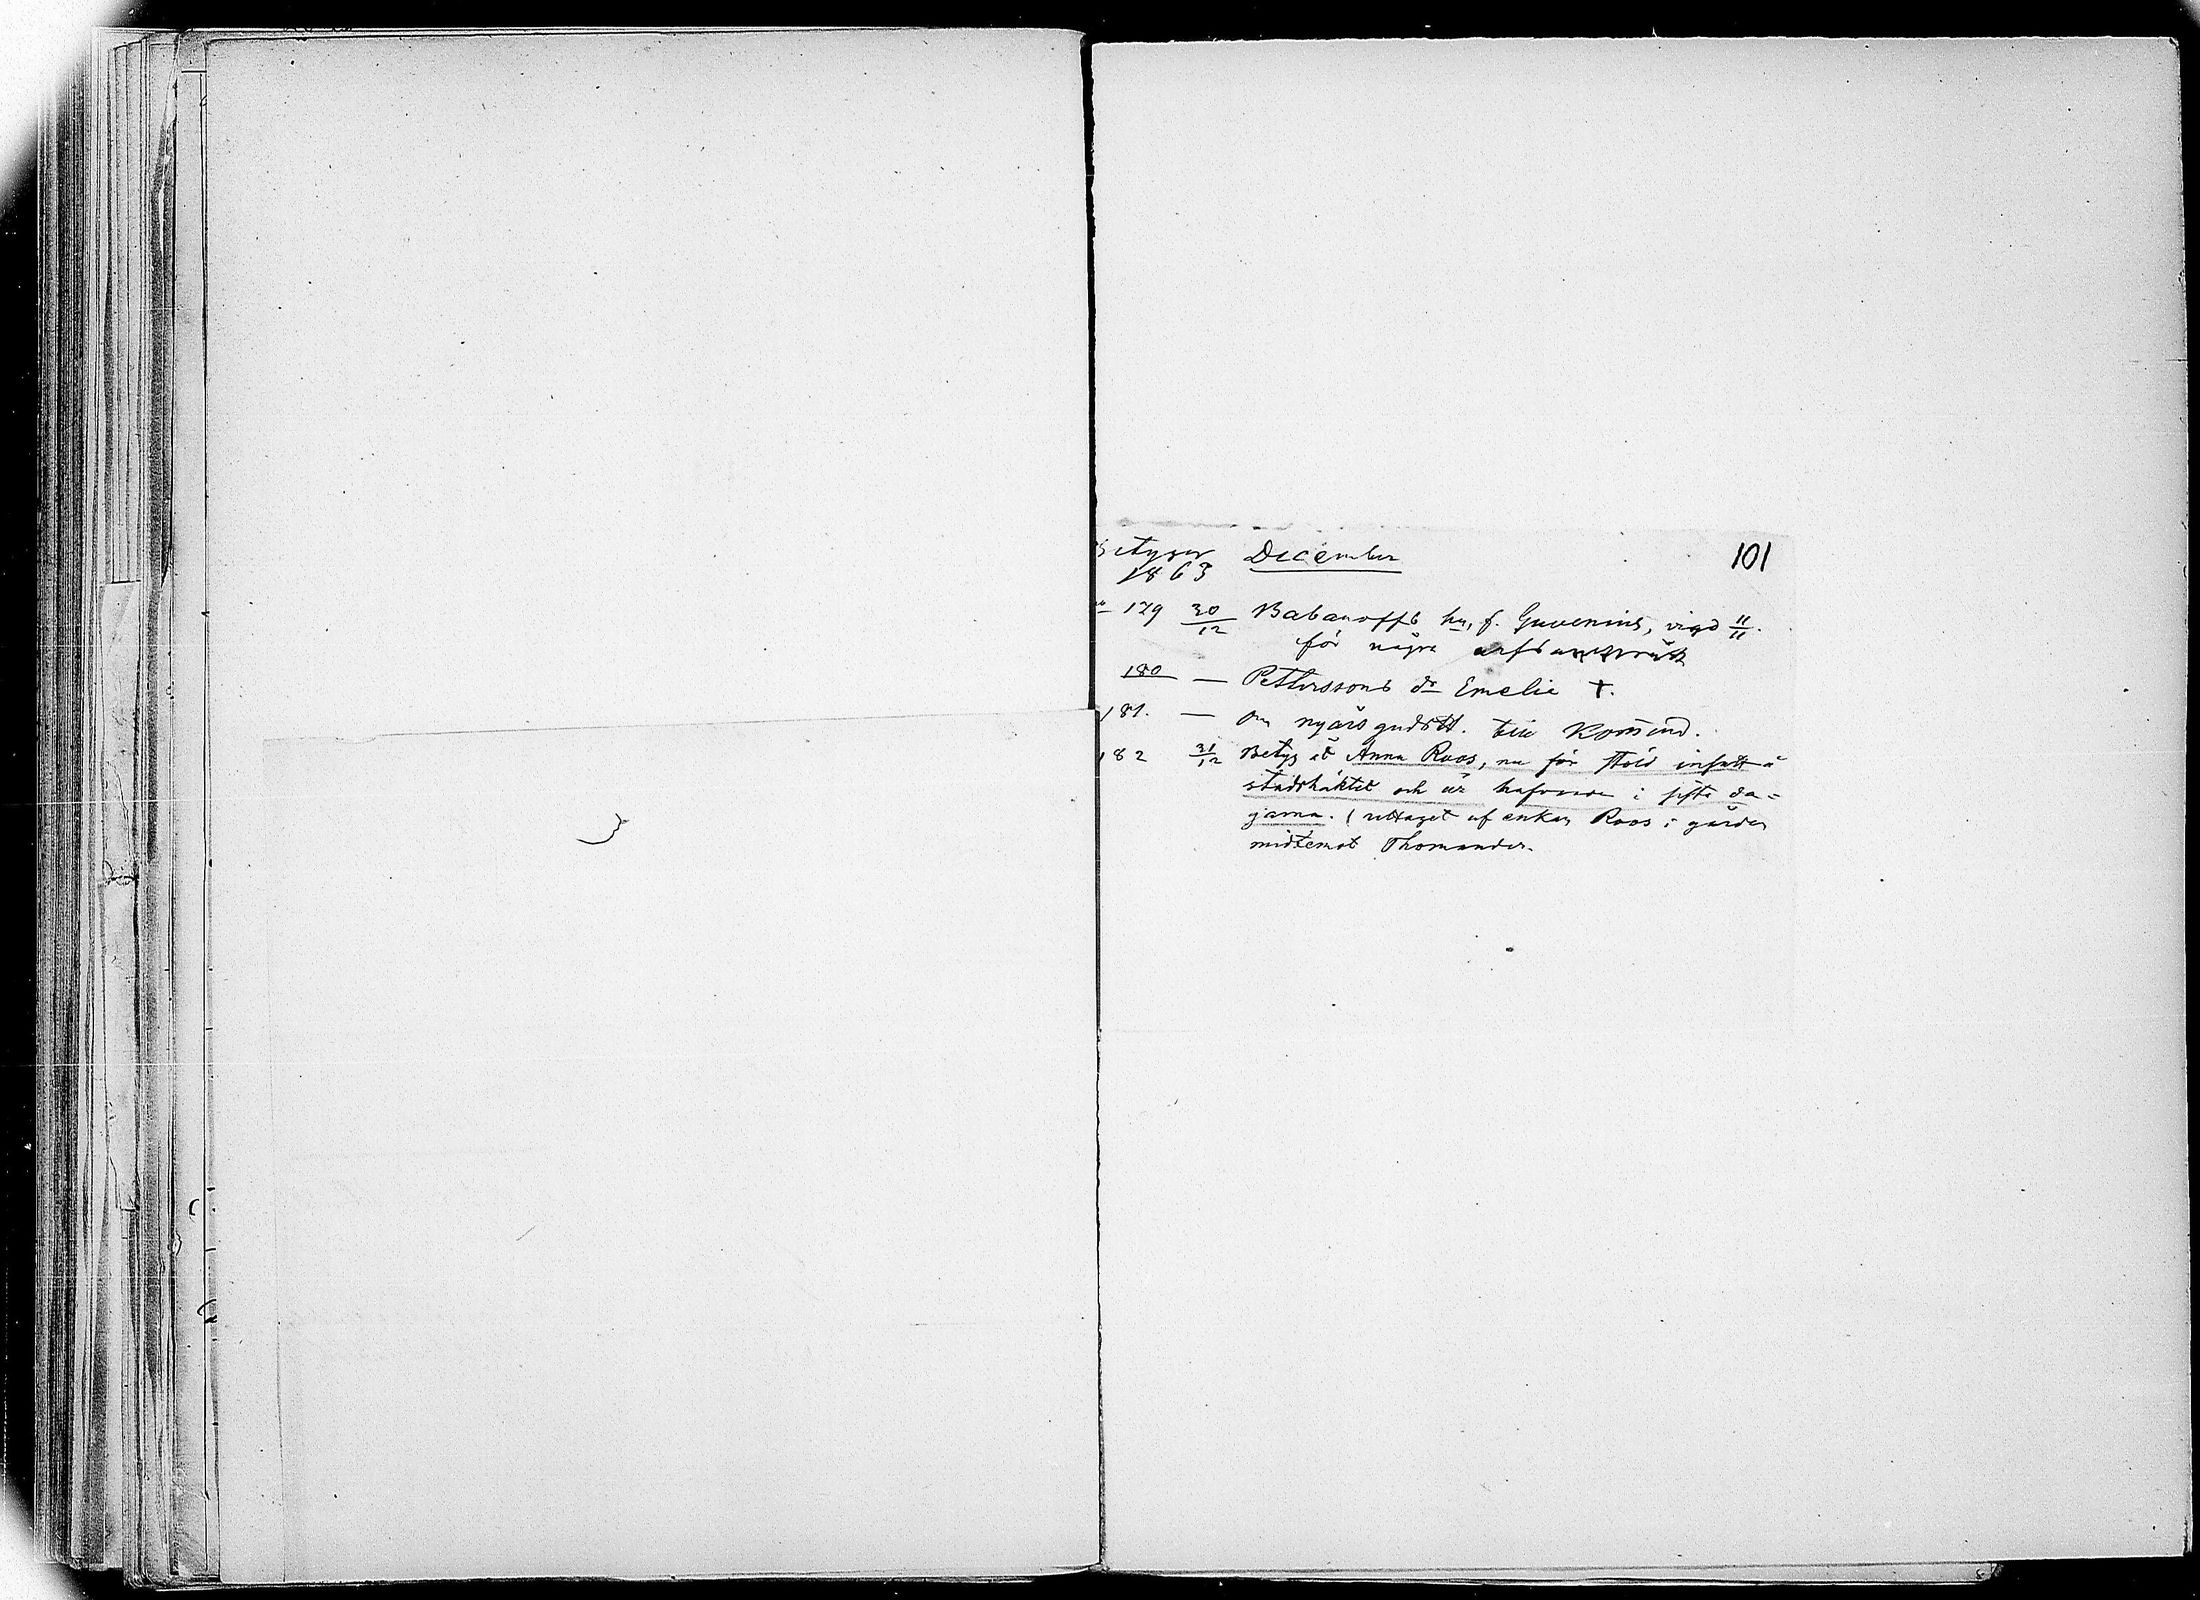 Betyger December 101
1863
179 30/12 Babanoffs hu, f. Guvenius, vigd 11/11.
för några
180 — Petterssons dr Emelie †.
181. — Om nyårs gudstt. till Komend.
182 31/12 Betyg åt Anna Roos, nu för stöld insatt å
stadshäktet och är hafvande i sista da=
garna. (uttaget af enkan Roos i gården
midtemot Thomander.